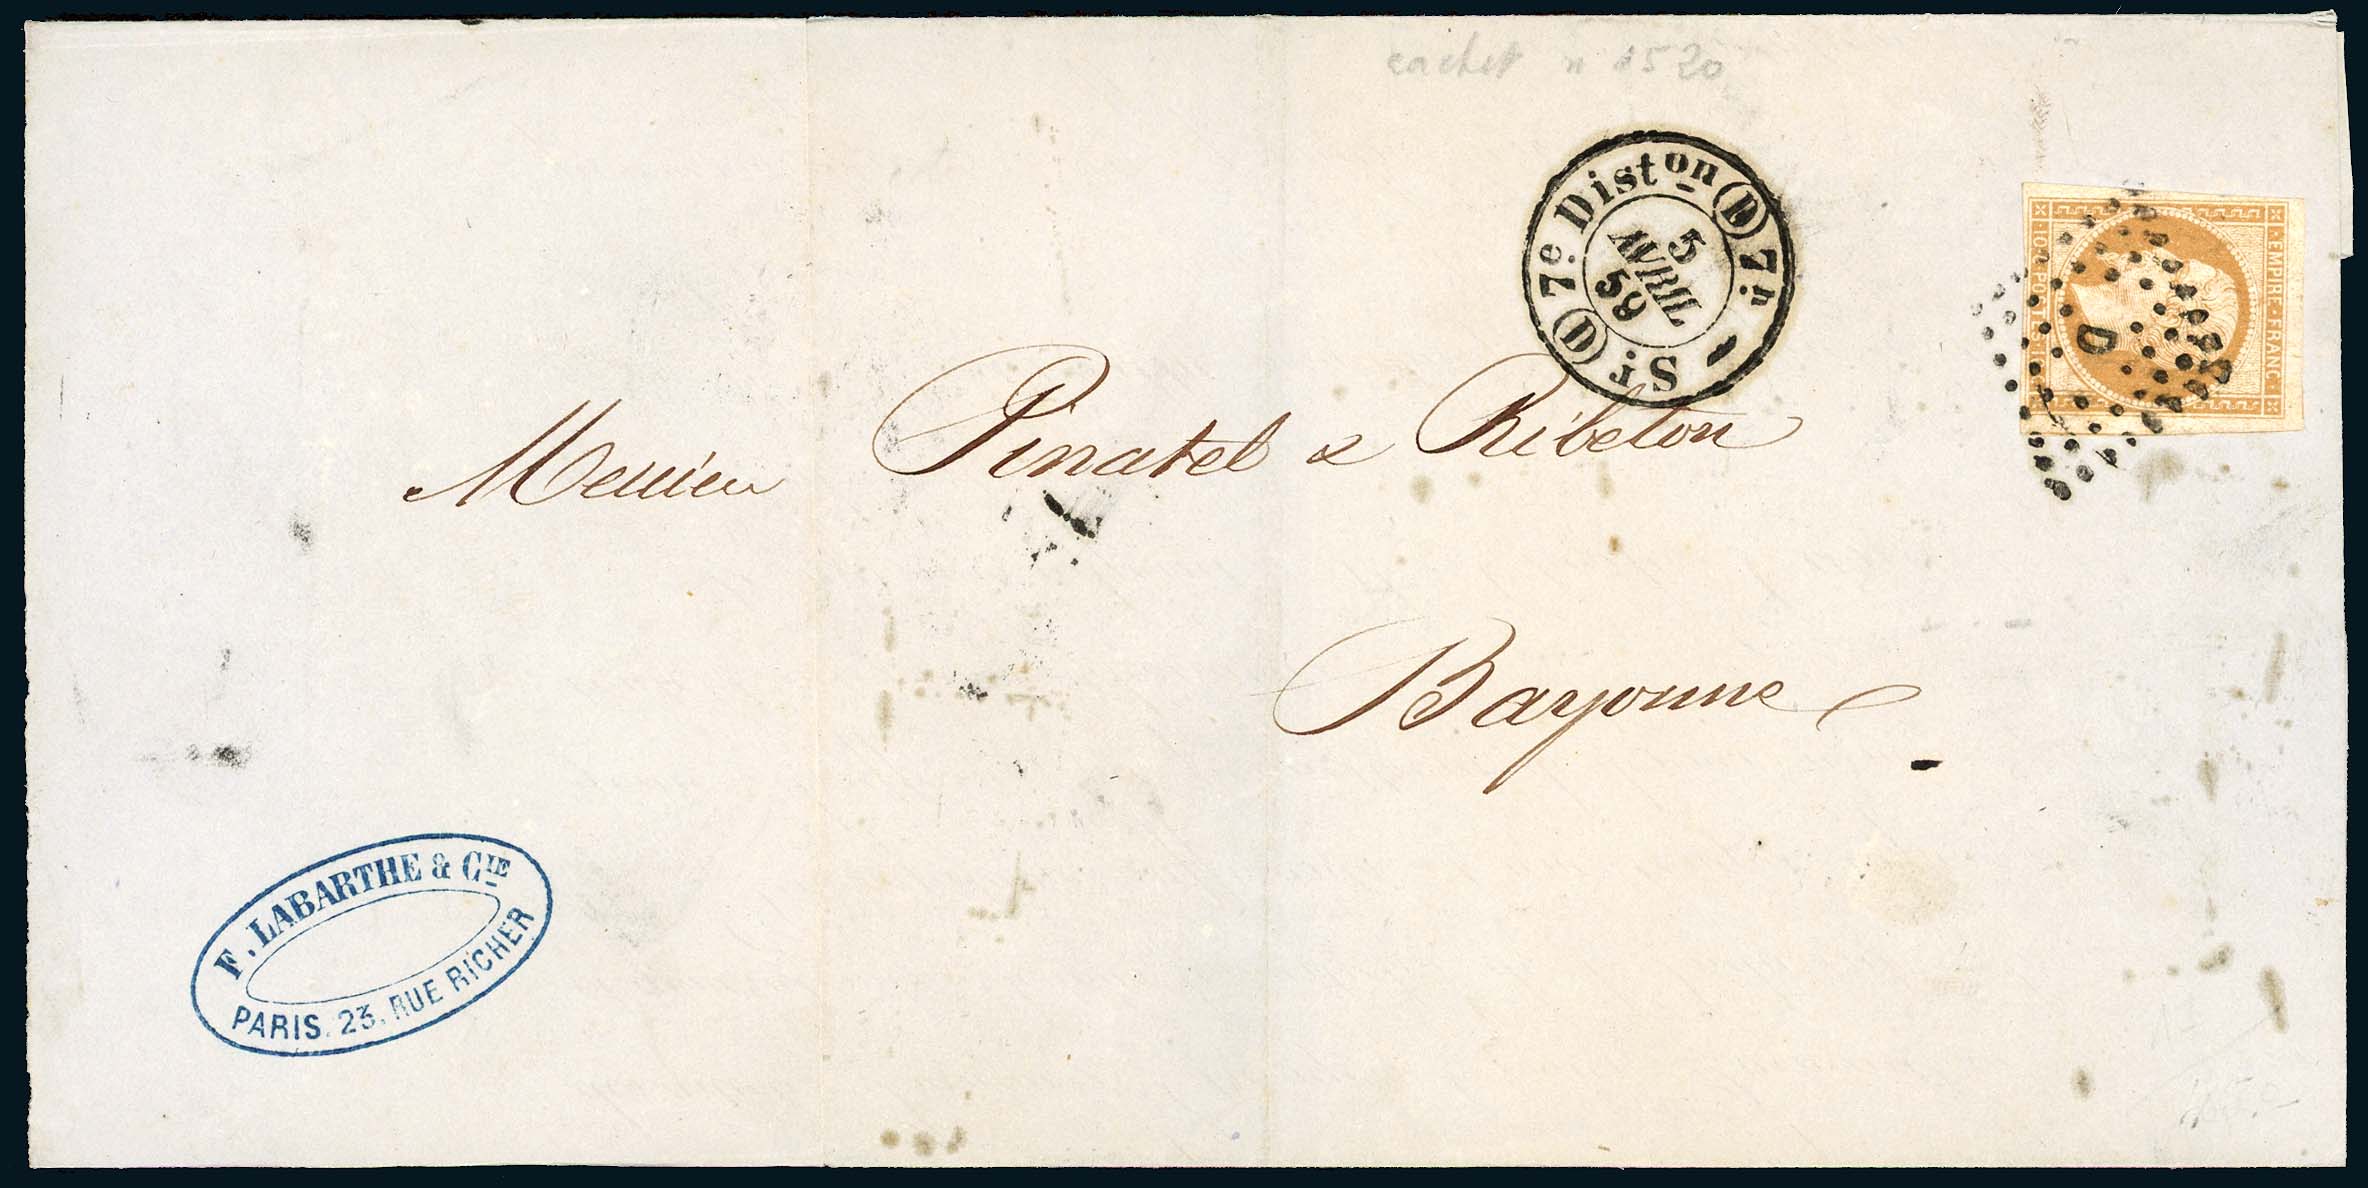 cachet n 1520
7e Diston (D) 7h
Sr. (D)
5
AVRIL
58
EMPIRE · FRANC ·
10 · c POSTES
D
Messieu Pinatel & Ribeton
Bayonne
F. LABARTHE & CIE
PARIS. 23. RUE RICHER